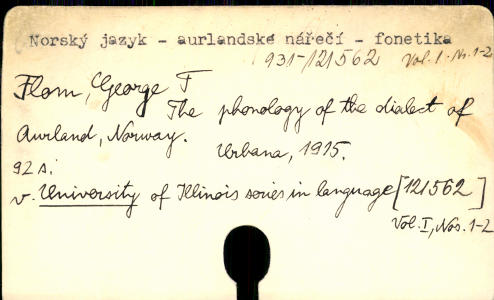 Norský jazyk - aurlandské nářečí - fonetika
931-121562 Vol. I. Nr. 1-2
Flom, George T
The phonology of the dialect of
Aurland, Norway. Urbana, 1915.
92 s.
v. University of Illinois series in language [121562]
Vol. I, Nos. 1-2